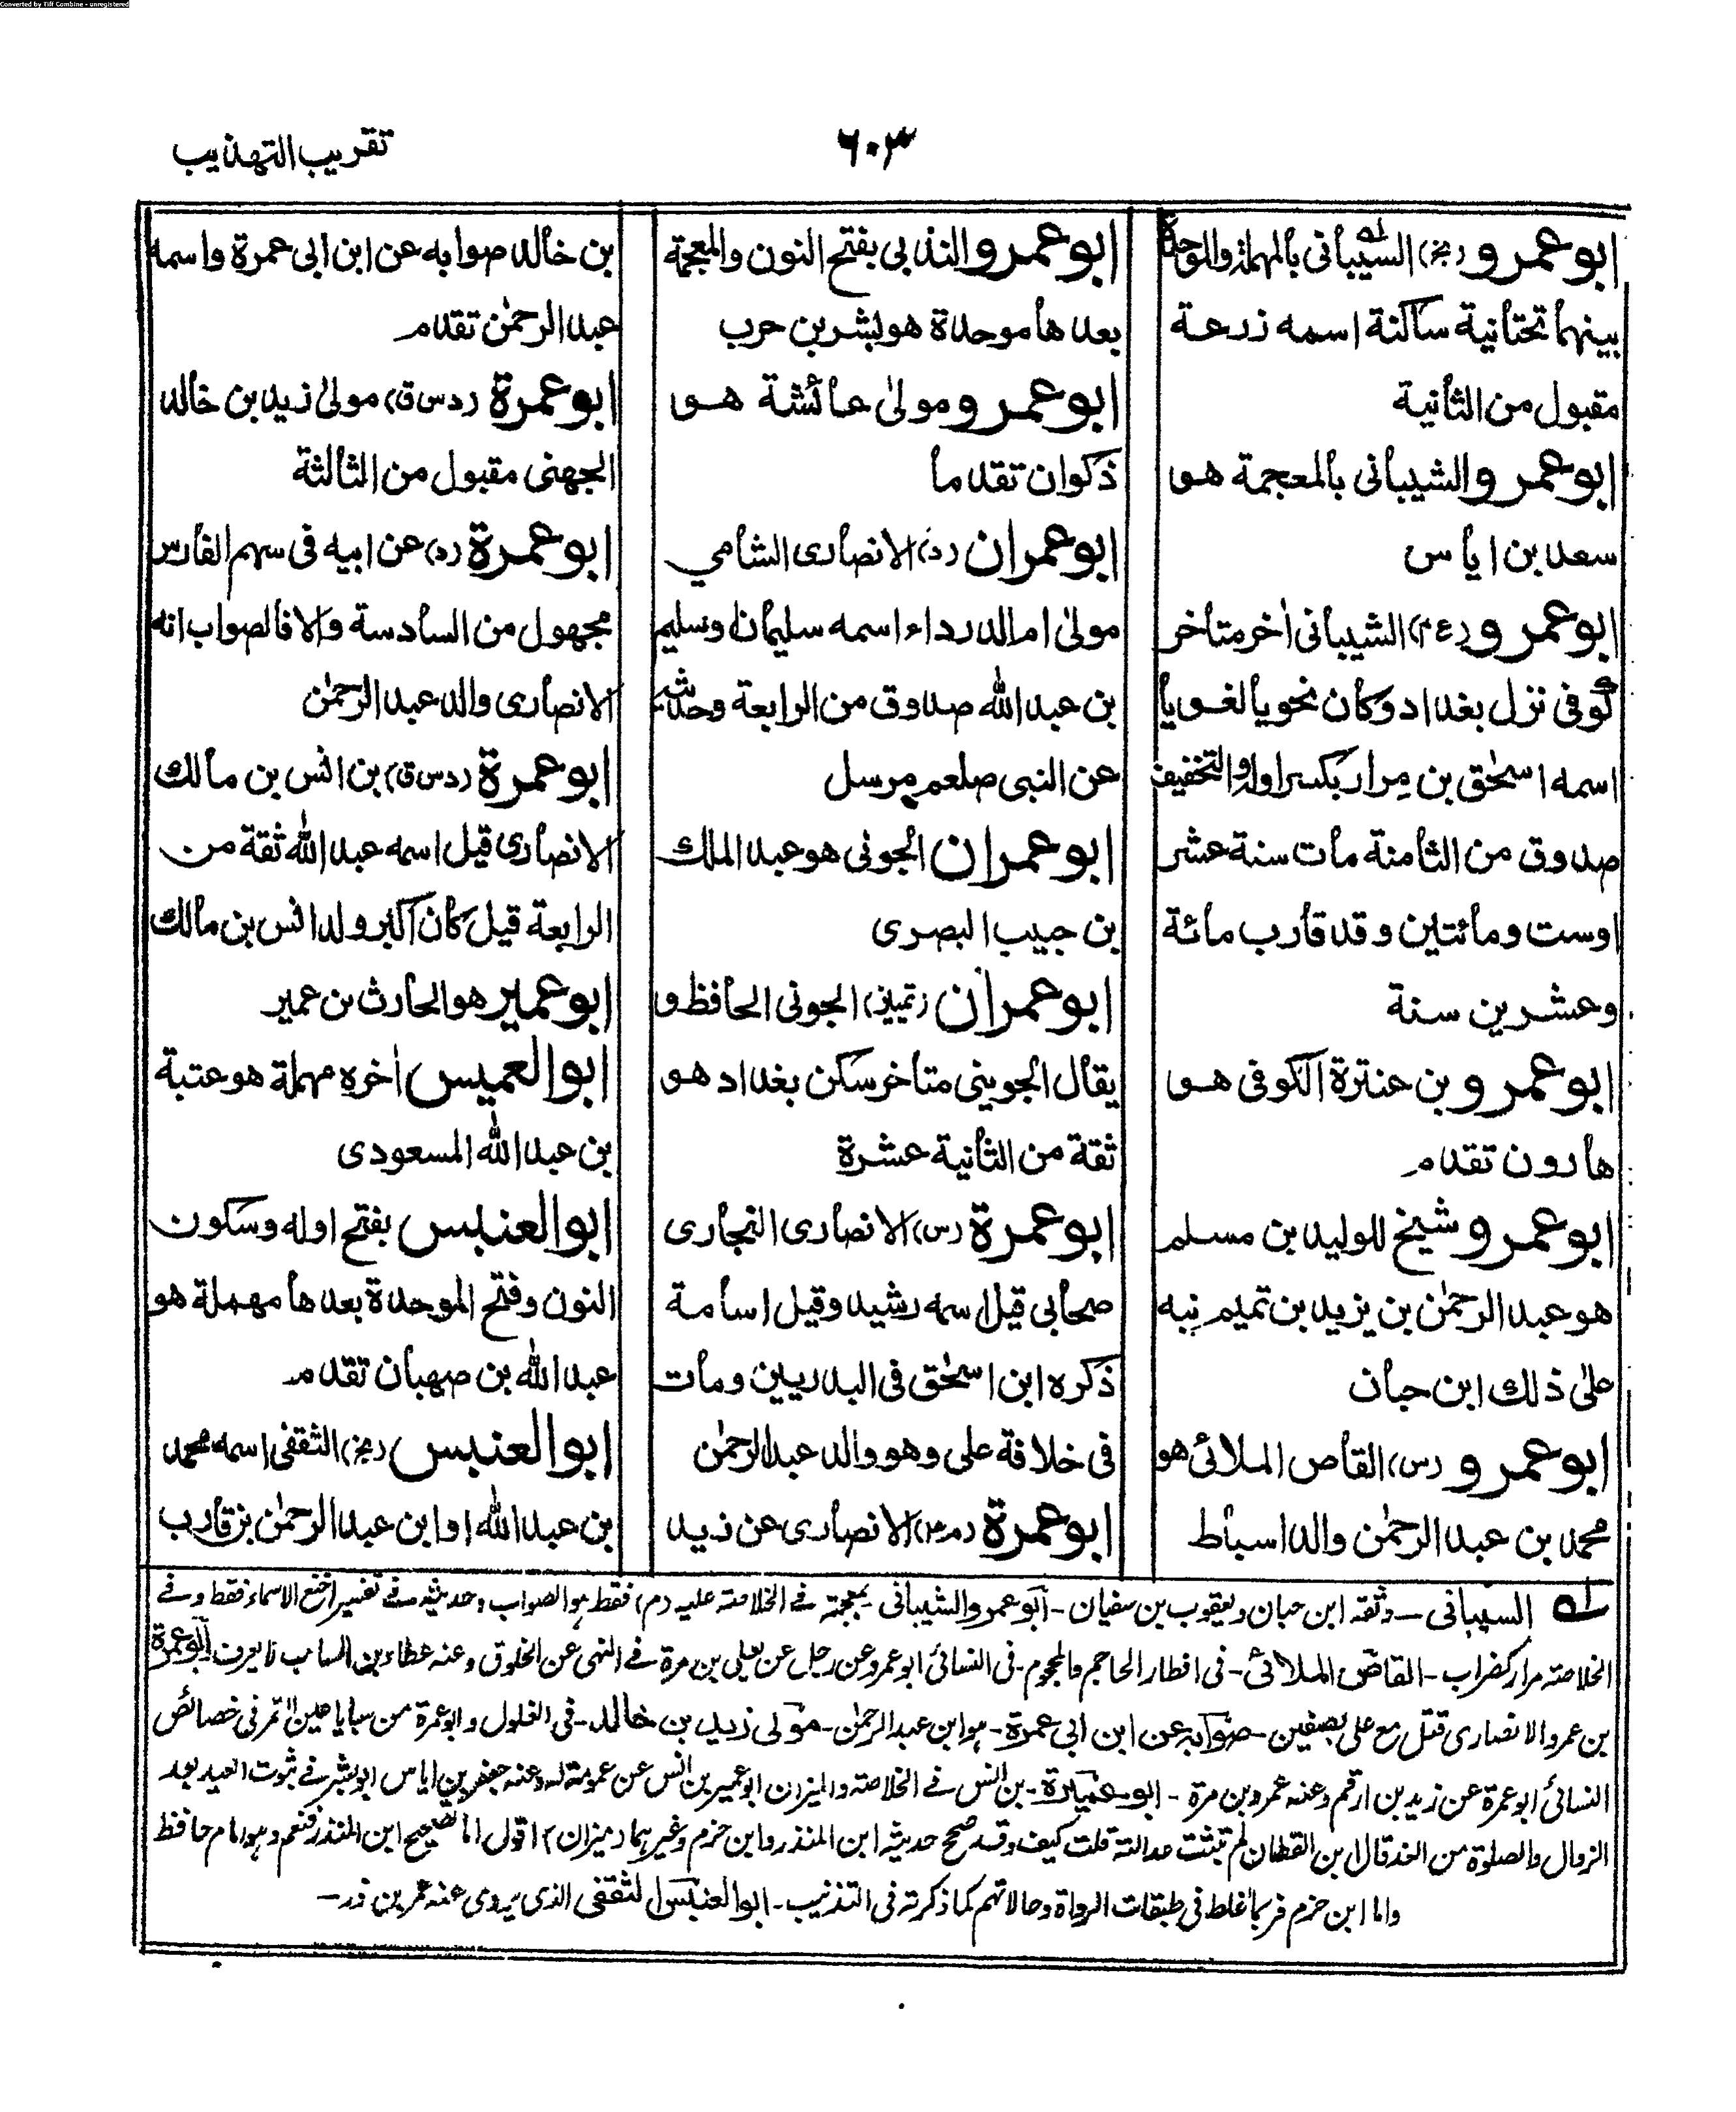 Converted by Tiff Combine - unregistered
تقريب التهذيب
٦٠٣
ابو عمرو (بخ) السيباني بالمهملة والموحدة
بينهما تحتانية ساكنة اسمه زرعة
مقبول من الثانية
ابو عمرو الشيباني بالمعجمة هو
سعد بن اياس
ابو عمرو (ع م) الشيباني اخر متاخر
كوفي نزل بغداد وكان نحويا لغويا
اسمه اسحٰق بن مِرار بكسر اوله والتخفيف
صدوق من الثامنة مات سنة عشر
اوست ومائتين وقد قارب مائة
وعشرين سنة
ابو عمرو بن عنترة الكوفي هو
هارون تقدم
ابو عمرو شيخ للوليد بن مسلم
هو عبد الرحمٰن بن يزيد بن تميم نبه
على ذلك ابن حبان
ابو عمرو (س) القاص الملائي هو
محمد بن عبد الرحمٰن والد اسباط
ابو عمرو الندبي بفتح النون والمعجمة
بعدها موحدة هو بشر بن حرب
ابو عمرو مولىٰ عائشة هو
ذكوان تقدما
ابو عمران (د) الانصاري الشامي
مولىٰ ام الدرداء اسمه سليمان وسليم
بن عبد الله صدوق من الرابعة وحديثه
عن النبي صلعم مرسل
ابو عمران الجوني هو عبد الملك
بن حبيب البصرى
ابو عمران (تمييز) الجوني الحافظ و
يقال الجويني متاخر سكن بغداد هو
ثقة من الثانية عشرة
ابو عمرة (س) الانصارى النجارى
صحابي قيل اسمه رشيد وقيل اسامة
ذكره ابن اسحٰق في البدريين ومات
في خلافة علي وهو والد عبد الرحمٰن
ابو عمرة الانصارى عن زيد
بن خالد صوابه عن ابن ابى عمرة واسمه
عبد الرحمٰن تقدم
ابو عمرة (د س ق) مولىٰ زيد بن خالد
الجهنى مقبول من الثالثة
ابو عمرة (د) عن ابيه في سهم الفارس
مجهول من السادسة والا فالصواب انه
الانصارى والد عبد الرحمٰن
ابو عمرة (د س ق) بن انس بن مالك
الانصارى قيل اسمه عبد الله ثقة من
الرابعة قيل كان اكبر ولد انس بن مالك
ابو عمير هو الحارث بن عمير
ابو العميس اخره مهملة هو عتبة
بن عبد الله المسعودى
ابو العنبس بفتح اوله وسكون
النون وفتح الموحدة بعدها مهملة هو
عبد الله بن صهبان تقدم
ابو العنبس (بخ) الثقفي اسمه محمد
بن عبد الله او ابن عبد الرحمٰن بن قارب
له السيباني — وثقه ابن حبان ويعقوب بن سفيان - ابو عمرو الشيباني - بمعجمة في الخلاصة عليه (م) فقط هو الصواب وحديثه في تفسير اخنع الاسماء فقط وفي
الخلاصة مرار كضراب - القاص الملائي - في افطار الحاجم والمحجوم - في النسائى ابو عمرو عن رجل عن يعلى بن مرة في النهي عن الخلوق وعنه عطاء بن السائب لا يعرف ابو عمرة
بن عمرو الانصارى قتل مع علي بصفين - صوابه عن ابن ابي عمرة - هو ابن عبد الرحمٰن - مولى زيد بن خالد - في الغلول وابو عمرة من سبايا عين التمر في خصائص
النسائى ابو عمرة عن زيد بن ارقم وعنه عمرو بن مرة - ابو - بن انس في الخلاصة والميزان ابو عمير بن انس عن عمومة له وعنه جعفر بن اياس ابو بشر في ثبوت العيد بعد
الزوال والصلوة من الغد قال ابن القطان لم تثبت عدالته قلت كيف وقد صحح حديثه ابن المنذر وابن حزم وغيرهما (ميزان) اقول اما تصحيح ابن المنذر فنعم وهو امام حافظ
واما ابن حزم فربما غلط في طبقات الرواة وحالاتهم كما ذكرته في التذنيب - ابو العنبس الثقفي الذى يروى عنه عمر بن ذر —